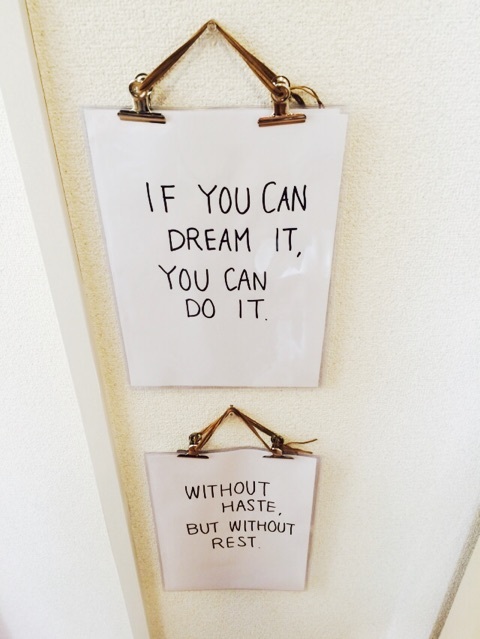 IF YOU CAN
DREAM IT,
YOU CAN
DO IT.
WITHOUT
HASTE,
BUT WITHOUT
REST.